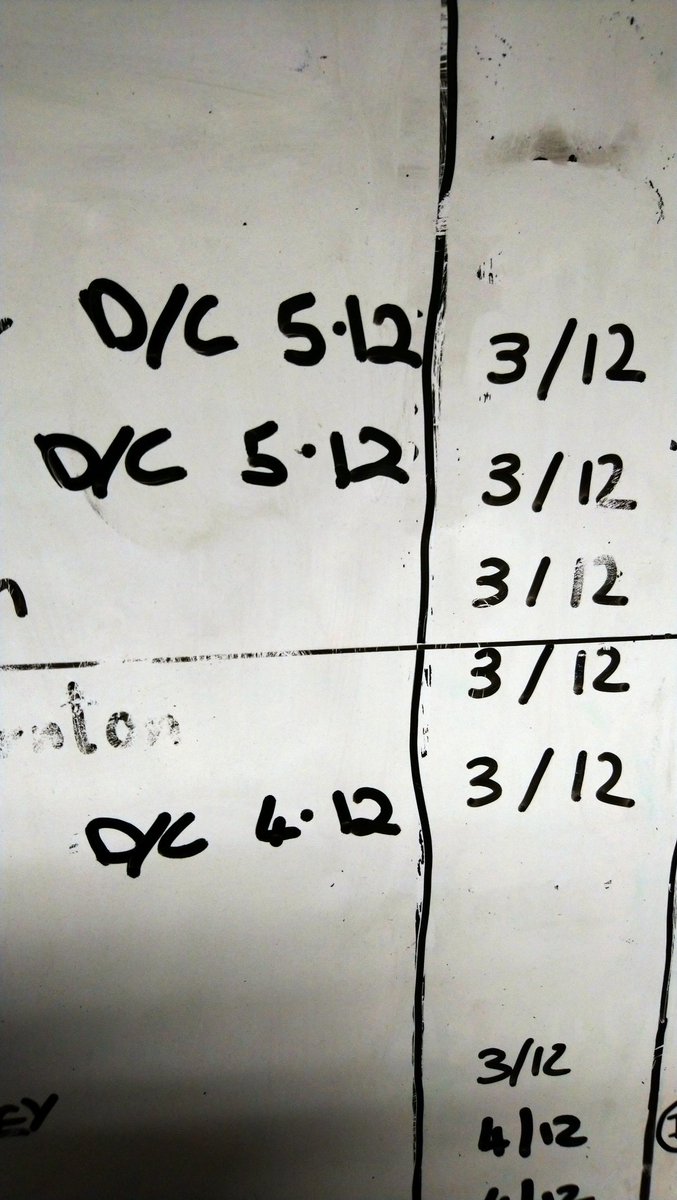 D/C 5.12
3/12
D/C 5.12
3/12
3/12
3/12
3/12
D/C 4.12
3/12
4/12